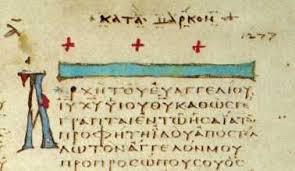 ΚΑΤΑ ΜΑΡΚΟΝ
1277
ΑΡΧΗΤΟΥΕΥΑΓΓΕΛΙΟΥ
ΙΥΧΥΥΙΟΥΘΥΚΑΘΩCΓΕ
ΓΡΑΠΤΑΙΕΝΤΩΗCΑΙΑΤΩ
ΠΡΟΦΗΤΗΙΔΟΥΑΠΟCΤΕΛ
ΛΩΤΟΝΑΓΓΕΛΟΝΜΟΥ
ΠΡΟΠΡΟCΩΠΟΥCΟΥΟC